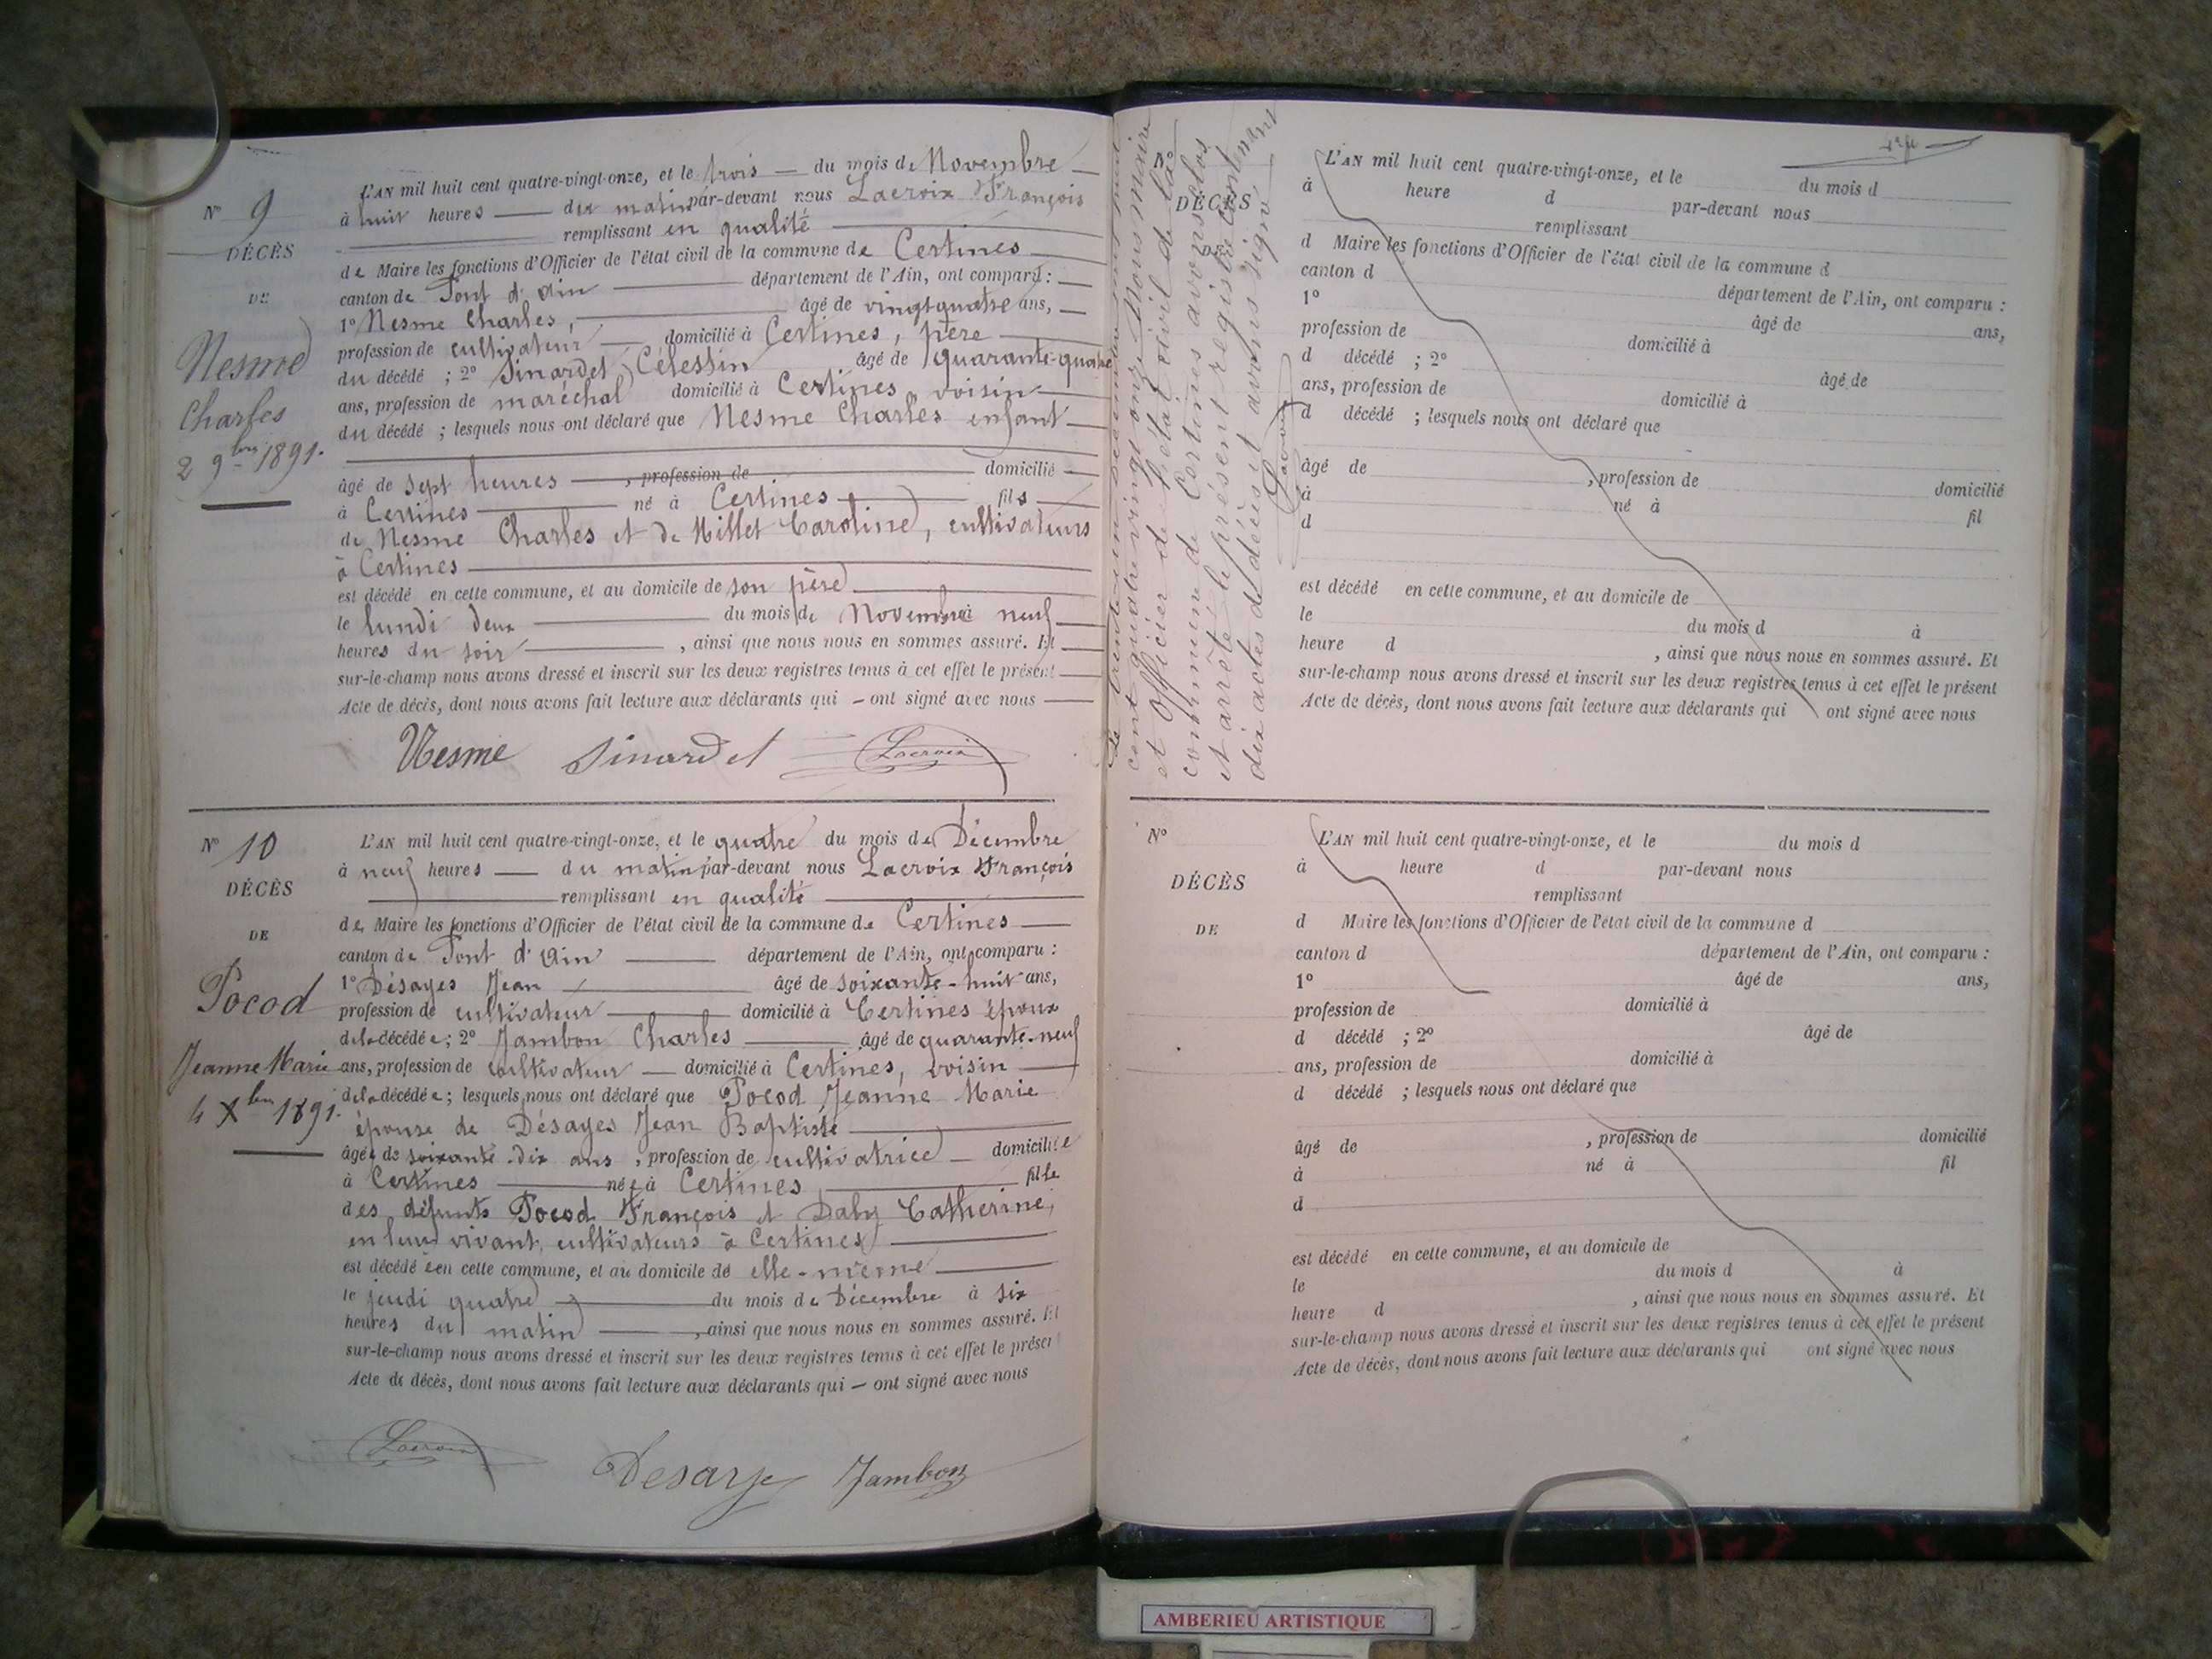 N° 9
DÉCÈS
DE
Nesme
Charles
2 9bre 1891.
L'AN mil huit cent quatre-vingt-onze, et le trois — du mois de Novembre
à huit heures — du matin par-devant nous Lacroix François
remplissant en qualité
de Maire les fonctions d'Officier de l'état civil de la commune de Certines
canton de Pont d'Ain — département de l'Ain, ont comparu :
1° Nesme Charles, âgé de vingt quatre ans,
profession de cultivateur — domicilié à Certines, père
du décédé ; 2° Sinardet Célestin âgé de quarante-quatre
ans, profession de maréchal domicilié à Certines voisin
du décédé ; lesquels nous ont déclaré que Nesme Charles enfant
âgé de sept heures —, profession de domicilié
à Certines — né à Certines — fils
de Nesme Charles et de Millet Caroline, cultivateurs
à Certines
est décédé en cette commune, et au domicile de son père
le lundi deux — du mois de Novembre à neuf
heures du soir —, ainsi que nous nous en sommes assuré. Et
sur-le-champ nous avons dressé et inscrit sur les deux registres tenus à cet effet le présent
Acte de décès, dont nous avons fait lecture aux déclarants qui — ont signé avec nous
Nesme Sinardet Lacroix
N° 10
DÉCÈS
DE
Pocod
Jeanne Marie
4 Xbre 1891.
L'AN mil huit cent quatre-vingt-onze, et le quatre du mois de Décembre
à neuf heures — du matin par-devant nous Lacroix François
remplissant en qualité
de Maire les fonctions d'Officier de l'état civil de la commune de Certines
canton de Pont d'Ain — département de l'Ain, ont comparu :
1° Désayes Jean — âgé de soixante-huit ans,
profession de cultivateur — domicilié à Certines époux
de la décédée ; 2° Jambon Charles — âgé de quarante-neuf
ans, profession de cultivateur — domicilié à Certines, voisin
de la décédée ; lesquels nous ont déclaré que Pocod Jeanne Marie
épouse de Désayes Jean Baptiste
âgée de soixante-dix ans, profession de cultivatrice — domiciliée
à Certines — née à Certines — fille
des défunts Pocod François et Daby Catherine,
en leur vivant, cultivateurs à Certines
est décédée en cette commune, et au domicile de elle-même
le jeudi quatre — du mois de Décembre à six
heures du matin —, ainsi que nous nous en sommes assuré. Et
sur-le-champ nous avons dressé et inscrit sur les deux registres tenus à cet effet le présent
Acte de décès, dont nous avons fait lecture aux déclarants qui — ont signé avec nous
Lacroix Desaye Jambon
Le trente-un décembre mil huit
cent quatre vingt onze Nous Maire
et Officier de l'état civil de la
commune de Certines avons clos
et arrêté le présent registre contenant
dix actes de décès et avons signé
Lacroix
N°
DÉCÈS
DE
L'AN mil huit cent quatre-vingt-onze, et le du mois d
à heure d par-devant nous
remplissant
d Maire les fonctions d'Officier de l'état civil de la commune d
canton d département de l'Ain, ont comparu :
1° âgé de ans,
profession de domicilié à
d décédé ; 2° âgé de
ans, profession de domicilié à
d décédé ; lesquels nous ont déclaré que
âgé de , profession de domicilié
à né à fil
d
est décédé en cette commune, et au domicile de
le du mois d à
heure d , ainsi que nous nous en sommes assuré. Et
sur-le-champ nous avons dressé et inscrit sur les deux registres tenus à cet effet le présent
Acte de décès, dont nous avons fait lecture aux déclarants qui ont signé avec nous
N°
DÉCÈS
DE
L'AN mil huit cent quatre-vingt-onze, et le du mois d
à heure d par-devant nous
remplissant
d Maire les fonctions d'Officier de l'état civil de la commune d
canton d département de l'Ain, ont comparu :
1° âgé de ans,
profession de domicilié à
d décédé ; 2° âgé de
ans, profession de domicilié à
d décédé ; lesquels nous ont déclaré que
âgé de , profession de domicilié
à né à fil
d
est décédé en cette commune, et au domicile de
le du mois d à
heure d , ainsi que nous nous en sommes assuré. Et
sur-le-champ nous avons dressé et inscrit sur les deux registres tenus à cet effet le présent
Acte de décès, dont nous avons fait lecture aux déclarants qui ont signé avec nous
AMBERIEU ARTISTIQUE